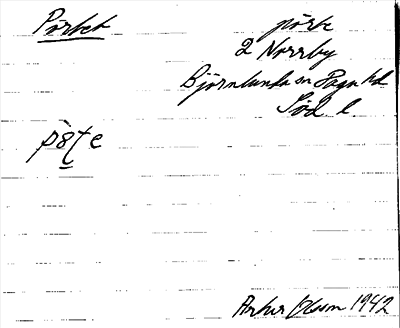 Pörket
pörk
2 Norrby
Björnlunda sn Daga hd
Söd l.
Artur Olsson 1942